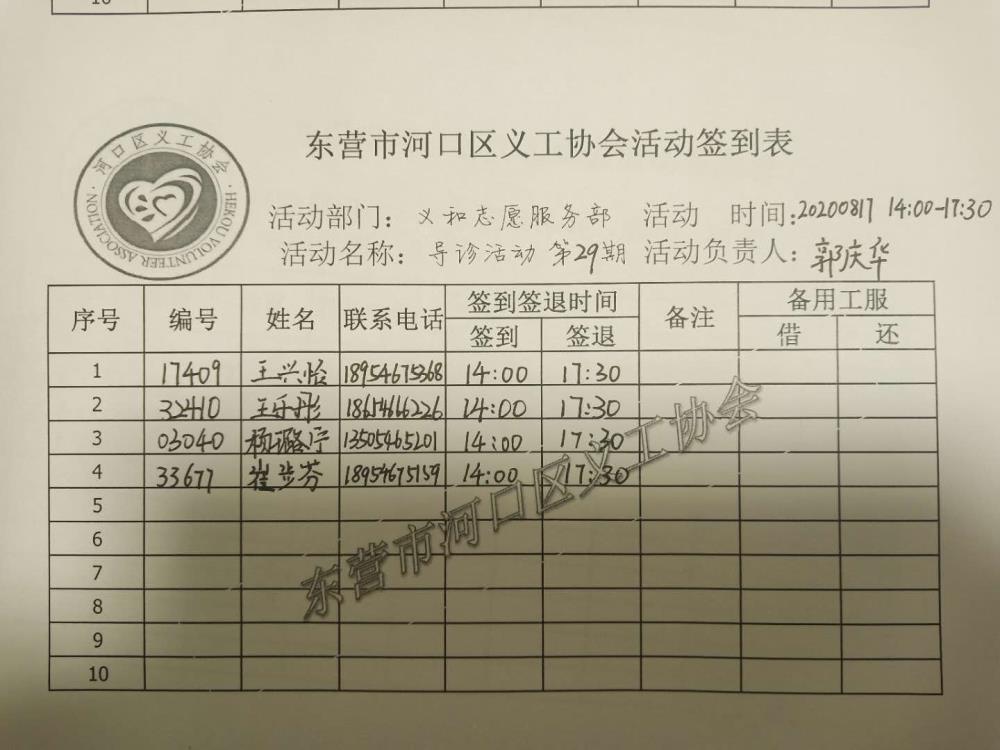 10
河口区义工协会
HEKOU VOLUNTEER ASSOCIATION
东营市河口区义工协会活动签到表
活动部门：义和志愿服务部 活动 时间:20200817 14:00-17:30
活动名称：导诊活动 第29期 活动负责人：郭庆华
序号 编号 姓名 联系电话 签到签退时间 备注 备用工服
签到 签退 借 还
1 17409 王兴怡 18954675368 14:00 17:30
2 32410 王乐彤 18654666226 14:00 17:30
3 03040 杨璐宁 13505465201 14:00 17:30
4 33677 崔步芬 18954675159 14:00 17:30
5
6
7
8
9
10
东营市河口区义工协会